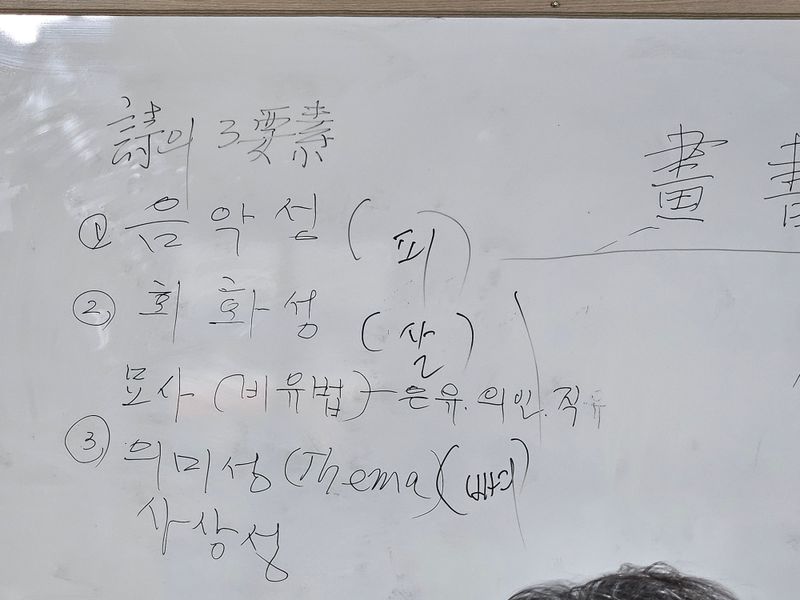 詩의 3要素
① 음악성 (피)
②, 회화성 (살)
묘사 (비유법) - 은유. 의인. 직유
③, 의미성 (Thema) (뼈)
사상성
畫